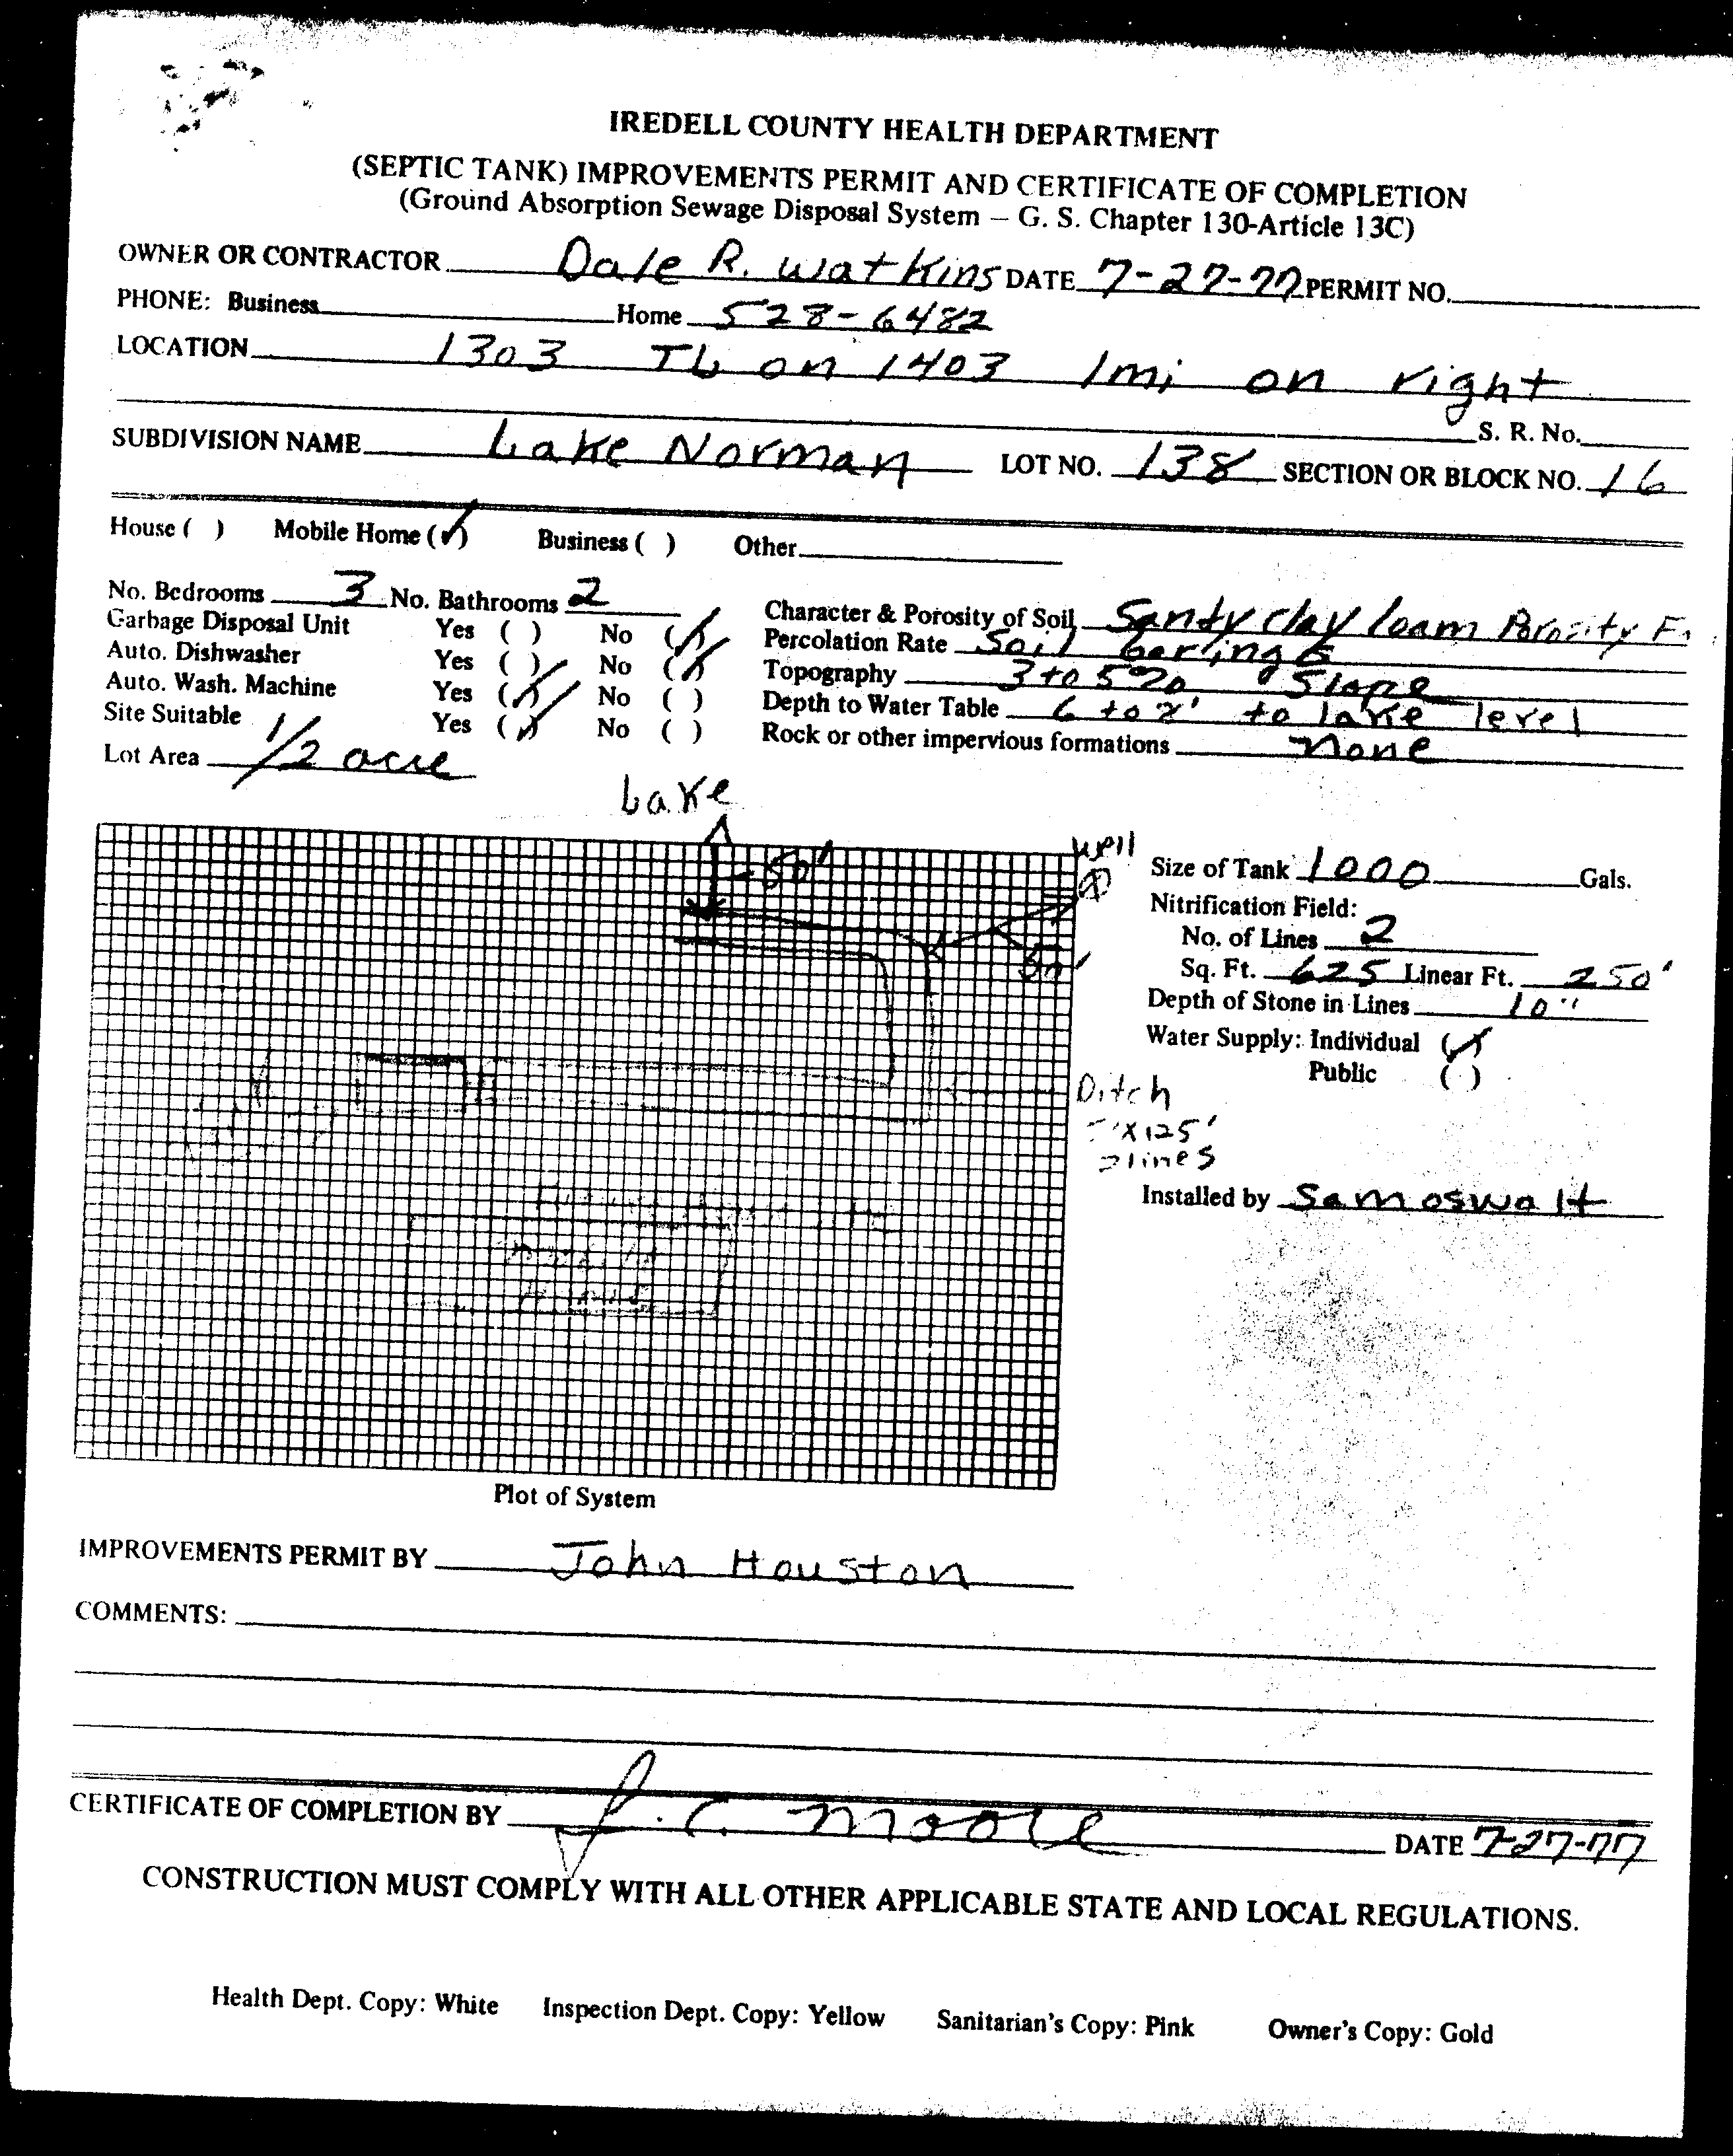 IREDELL COUNTY HEALTH DEPARTMENT
(SEPTIC TANK) IMPROVEMENTS PERMIT AND CERTIFICATE OF COMPLETION
(Ground Absorption Sewage Disposal System – G. S. Chapter 130-Article 13C)
OWNER OR CONTRACTOR Dale R. Watkins DATE 7-27-77 PERMIT NO.
PHONE: Business Home 528-6482
LOCATION 1303 TL on 1403 1mi on right
S. R. No.
SUBDIVISION NAME Lake Norman LOT NO. 138 SECTION OR BLOCK NO. 16
House ( ) Mobile Home (✓) Business ( ) Other
No. Bedrooms 3 No. Bathrooms 2
Garbage Disposal Unit Yes ( ) No (✓)
Auto. Dishwasher Yes ( ) No (✓)
Auto. Wash. Machine Yes (✓) No ( )
Site Suitable Yes (✓) No ( )
Lot Area 1/2 acre
Character & Porosity of Soil Sandy clay loam Porosity
Percolation Rate Soil borings
Topography 3 to 5% Slope
Depth to Water Table 6 to 8' to lake level
Rock or other impervious formations none
Lake
50'
well
50'
Size of Tank 1000 Gals.
Nitrification Field:
No. of Lines 2
Sq. Ft. 625 Linear Ft. 250'
Depth of Stone in Lines 10"
Water Supply: Individual (✓)
Public ( )
Ditch
X125'
2 lines
Installed by Sam oswalt
Plot of System
IMPROVEMENTS PERMIT BY John Houston
COMMENTS:
CERTIFICATE OF COMPLETION BY J. C. Moore DATE 7-27-77
CONSTRUCTION MUST COMPLY WITH ALL OTHER APPLICABLE STATE AND LOCAL REGULATIONS.
Health Dept. Copy: White Inspection Dept. Copy: Yellow Sanitarian's Copy: Pink Owner's Copy: Gold